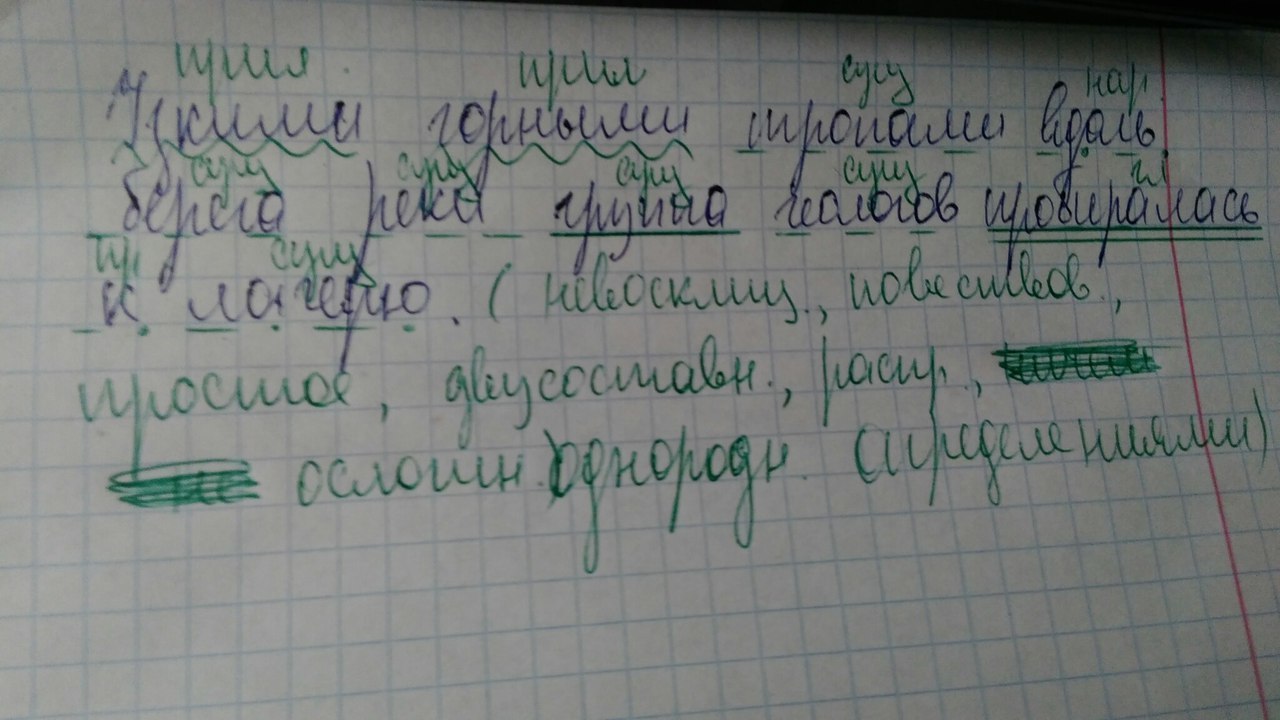 прил. прил сущ нар.
Узкими горными тропами вдоль
сущ сущ сущ сущ гл
берега реки группа геологов пробиралась
пр сущ
к лагерю. (невосклиц., повествов.,
простое, двусоставн., распр.,
осложн. однородн. определениями)